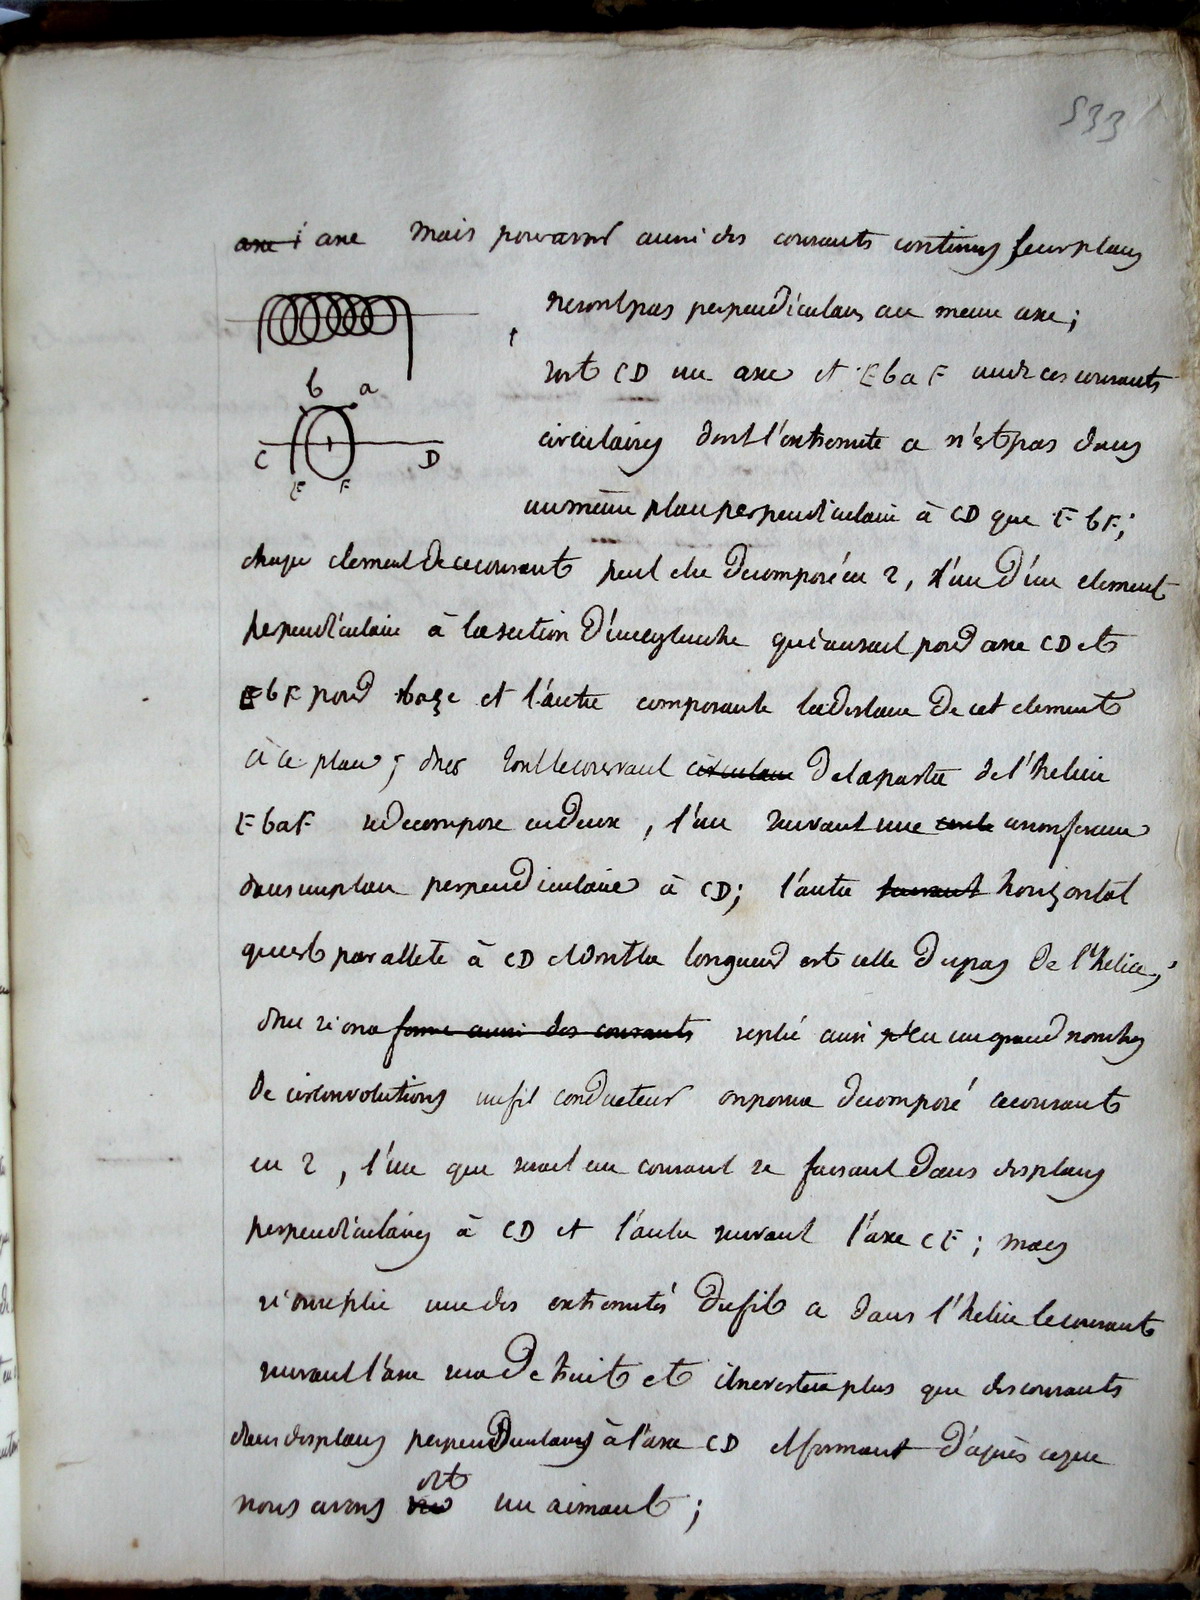 533
axe i axe mais pour avoir aussi des courants continus leurs plans
ne sont pas perpendiculaires au meme axe;
soit CD un axe et EbaF un de ces courants
b a
C D
E F
circulaires dont l'extremite a n'est pas dans
un même plan perpendiculaire à CD que EbF;
chaque element de ce courant peut etre decomposé en 2, l'un d'un element
perpendiculaire à la section d'un cylindre qui aurait pour axe CD et
EbF pour base et l'autre composante la distance de cet element
à ce plan; donc tout le courant circulaire de la partie de l'helice
EbaF se decompose en deux, l'un suivant une circonference
dans un plan perpendiculaire à CD; l'autre suivant horizontal
qui est parallele à CD et dont la longueur est celle du pas de l'helice;
donc si on a formé ainsi des courants replié ainsi en un grand nombre
de circonvolutions un fil conducteur on pourra decomposé ce courant
en 2, l'un que serait un courant se faisant dans des plans
perpendiculaires à CD et l'autre suivant l'axe CE; mais
si on replie une des extremités du fil a dans l'helice le courant
suivant l'axe sera detruit et il ne restera plus que des courants
dans des plans perpendiculaires à l'axe CD et formant d'après ce que
nous avons dit un aimant;